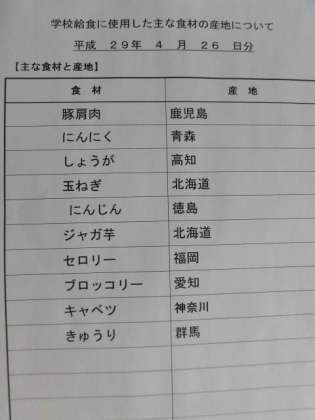 学校給食に使用した主な食材の産地について
平成　２９年　４　月　２６　日分
【主な食材と産地】
食　材　産　地
豚肩肉　鹿児島
にんにく　青森
しょうが　高知
玉ねぎ　北海道
にんじん　徳島
ジャガ芋　北海道
セロリー　福岡
ブロッコリー　愛知
キャベツ　神奈川
きゅうり　群馬